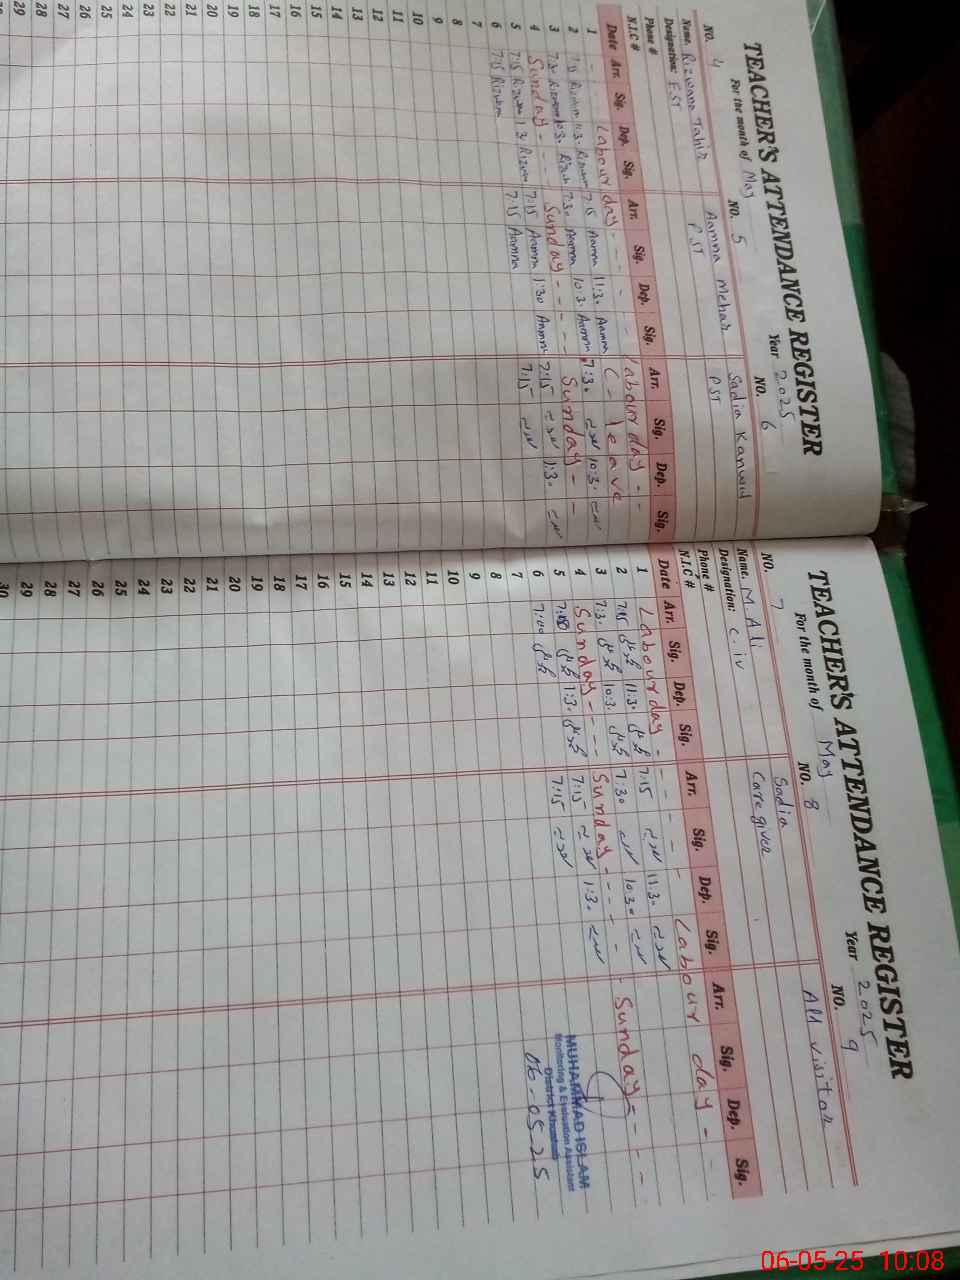 TEACHER'S ATTENDANCE REGISTER
For the month of May Year 2025
NO. 4 NO. 5 NO. 6
Name. Rizwana Tahir Aamna Mehar Sadia Kanwal
Designation: EST PST PST
Phone #
N.I.C #
Date Arr. Sig. Dep. Sig. Arr. Sig. Dep. Sig. Arr. Sig. Dep. Sig.
1 - - - Labour day - - - - - Labour day - -
2 7:15 Rizwan 11:3. Rizwan 7:15 Aamna 11:3. Aamna leave
3 7:3. Rizwan 10:3. Rizwan 7:3. Aamna 10:3. Aamna 7:3. 10:3.
4 Sunday - - - Sunday - - - - Sunday - -
5 7:15 Rizwan 1:3. Rizwan 7:15 Aamna 1:30 Aamna 7:15 1:3.
6 7:15 Rizwan 7:15 Aamna 7:15
7
8
9
10
11
12
13
14
15
16
17
18
19
20
21
22
23
24
25
26
27
28
29
TEACHER'S ATTENDANCE REGISTER
For the month of May Year 2025
NO. 7 NO. 8 NO. 9
Name. M. Ali Sadia All visitor
Designation: C. iv Caregiver
Phone #
N.I.C #
Date Arr. Sig. Dep. Sig. Arr. Sig. Dep. Sig. Arr. Sig. Dep. Sig.
1 Labour day - - - - - Labour day -
2 7:15 11:3. 7:15 11:3.
3 7:3. 10:3. 7:30 10:30
4 Sunday - - - Sunday - - - - Sunday - - -
5 7:00 1:3. 7:15 1:3.
6 7:00 7:15
MUHAMMAD ISLAM
Monitoring & Evaluation Assistant
06-05-25
7
8
9
10
11
12
13
14
15
16
17
18
19
20
21
22
23
24
25
26
27
28
29
30
06-05-25 10:08